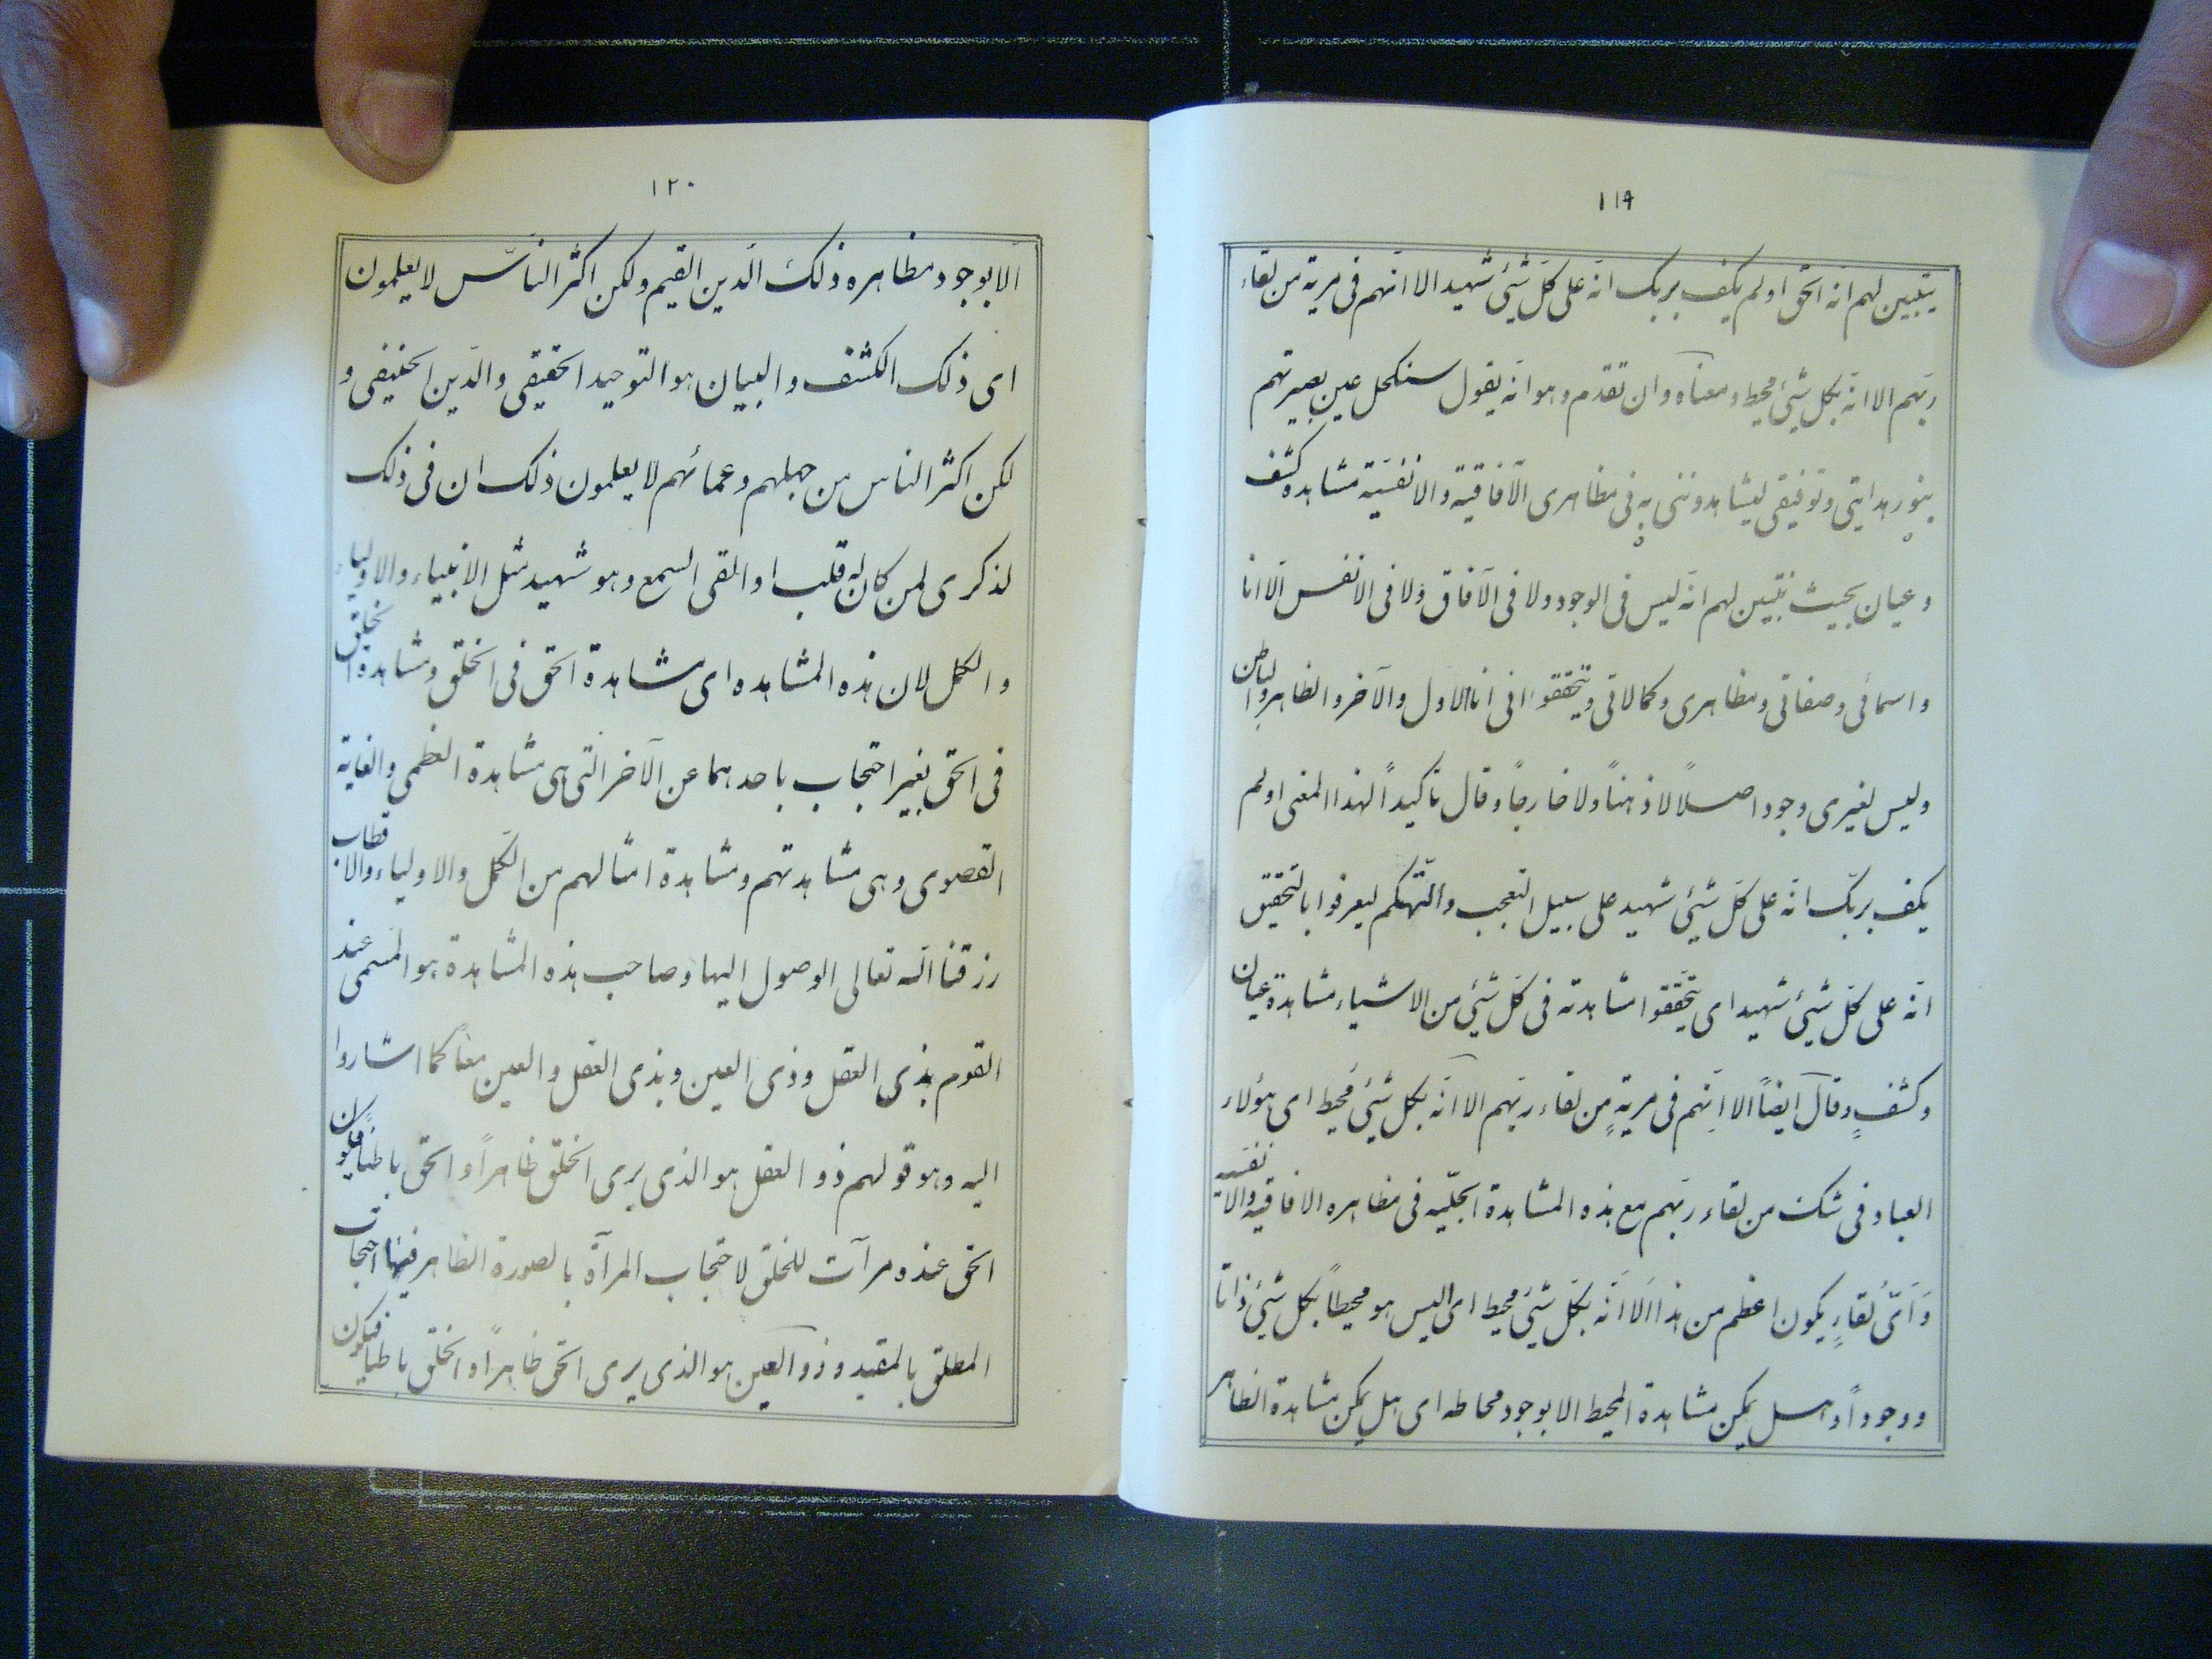 ١١٩
يتبين لهم انّه الحق اولم يكف بربك انّه على كلّ شئ شهيد الا انّهم فى مرية من لقاء
ربّهم الا انّه بكل شئ محيط و معناه وان تقدم وهو انّه يقول سنكحل عين بصيرتهم
بنور هدايتى وتوفيقى ليشاهدوننى به فى مظاهرى الآفاقية والانفسيّة مشاهدة كشف
وعيان بحيث يتبين لهم انّه ليس فى الوجود ولا فى الآفاق ولا فى الانفس الّا انا
و اسمائى وصفاتى ومظاهرى وكمالاتى ويتحققوا انى انا الاول والآخر والظاهر والباطن
وليس لغيرى وجود اصلاً لا ذهناً ولا خارجاً وقال تاكيداً لهذا المعنى اولم
يكف بربّك انّه على كلّ شئ شهيد على سبيل التعجب والتّهكم ليعرفوا بالتحقيق
انّه على كلّ شئ شهيد اى يتحقّقوا مشاهدته فى كلّ شئ من الاشياء مشاهدة عيان
وكشفٍ وقال ايضاً الا اِنّهم فى مريةٍ من لقاء ربّهم الا انّه بكل شئ مُحيط اى هؤلاء
العباد فى شكّ من لقاء ربّهم مع هذه المشاهدة الجليّه فى مظاهره الافاقية والانفسيه
وَاَىّ لقاءٍ يكون اعظم من هذا اَلا اَنّه بكلّ شئ محيط اى اليس هو محيطاً بكل شئ ذاتا
ووجوداً وهل يمكن مشاهدة المحيط الا بوجود محاطه اى هل يمكن مشاهدة الظاهر
١٢٠
اَلا بوجود مظاهره ذلك الّدين القيم ولكن اكثر النّاس لا يعلمون
اى ذلك الكشف والبيان هو التوحيد الحقيقى والدّين الحنيفى و
لكن اكثر الناس من جهلهم وعمائهم لا يعلمون ذلك ان فى ذلك
لذكرى لمن كان له قلب او القى السمع وهو شهيد مثل الانبياء والاولياء
والكمل لان هذه المشاهده اى مشاهدة الحق فى الخلق ومشاهدة الخلق
فى الحق بغير احتجاب باحدهما عن الآخر التى هى مشاهدة العظمى والغاية
القصوى وهى مشاهدتهم ومشاهدة امثالهم من الكمّل والاولياء والاقطاب
رزقنا الله تعالى الوصول اليها وصاحب هذه المشاهدة هو المسمى عند
القوم بذى العقل وذى العين وبذى العقل والعين معاً كما اشاروا
اليه وهو قولهم ذو العقل هو الذى يرى الخلق ظاهراً والحق باطناً فيكون
الحق عنده مرآت للخلق لاحتجاب المرآة بالصورة الظاهر فيها احتجاب
المطلق بالمقيد وذوالعين هو الذى يرى الحق ظاهراً والخلق باطناً فيكون